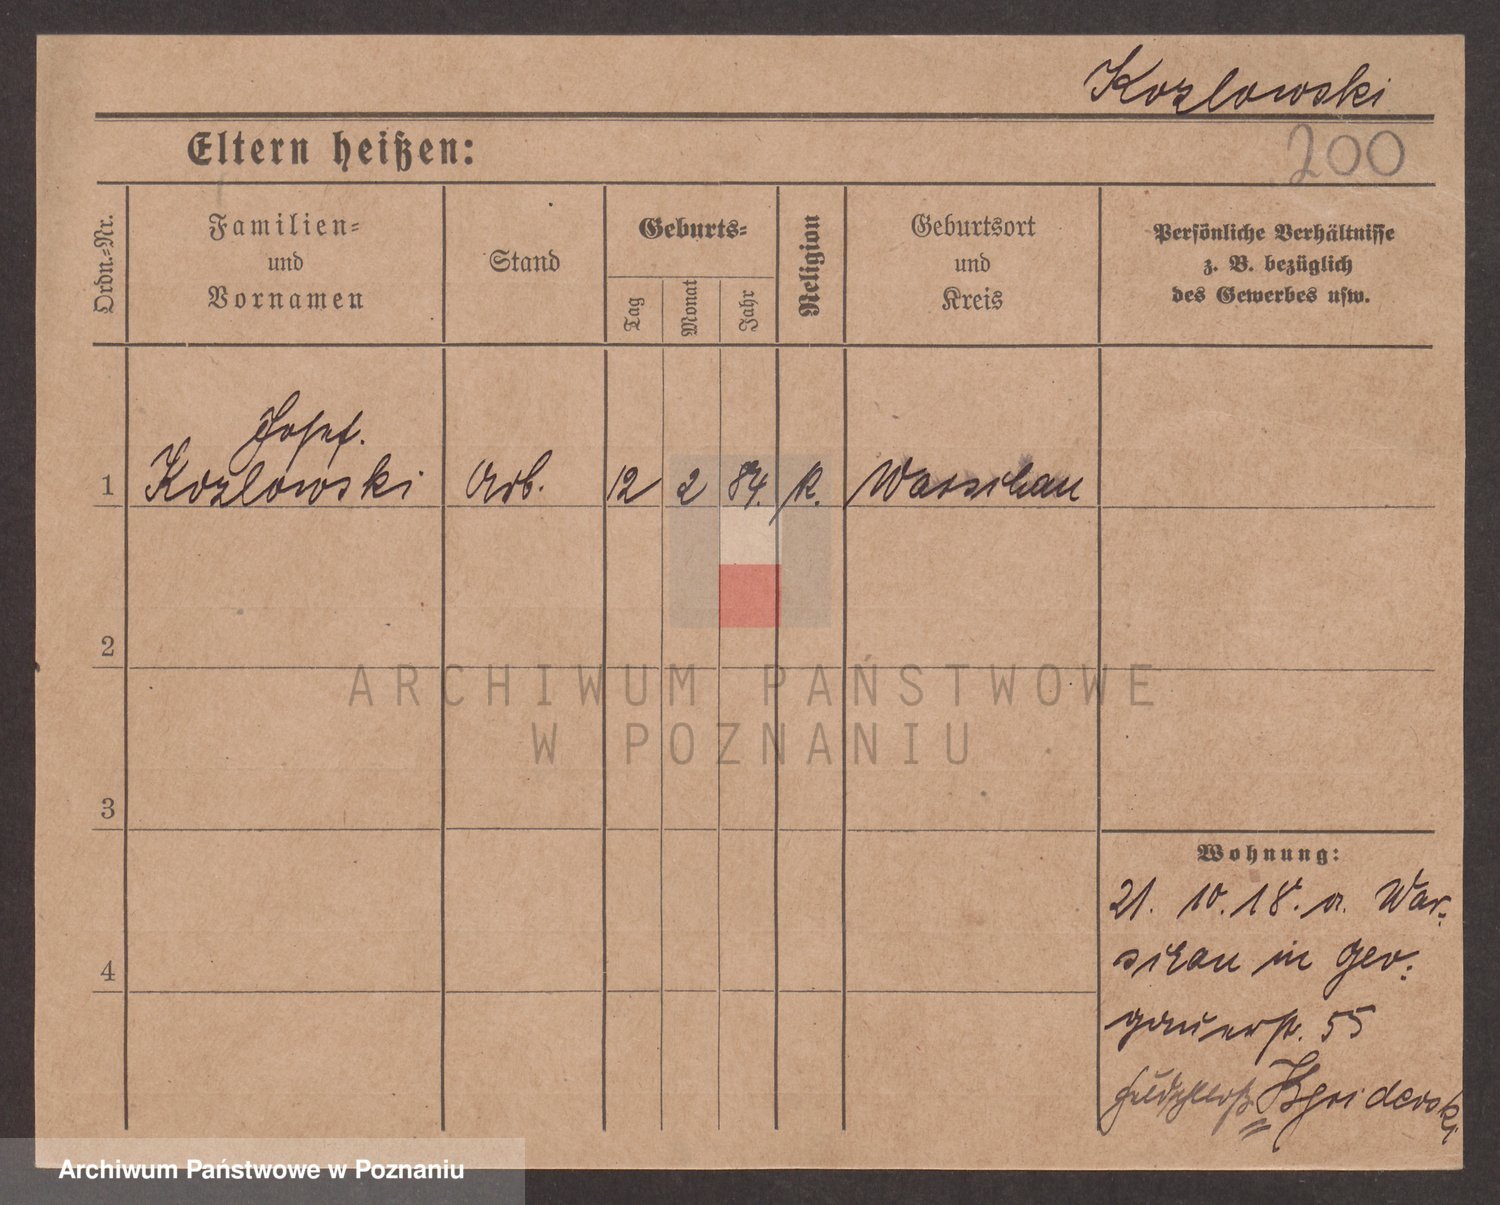 Kozlowski
Eltern heißen:
200
Ordn.-Nr.
Familien-
und
Vornamen
Stand
Geburts-
Tag
Monat
Jahr
Religion
Geburtsort
und
Kreis
Persönliche Verhältnisse
z. B. bezüglich
des Gewerbes usw.
Josef.
1 Kozlowski Arb. 12 2 84. k. Warschau
2
3
4
Wohnung:
21. 10. 18. a. War-
schau in
55
ARCHIWUM PAŃSTWOWE
W POZNANIU
Archiwum Państwowe w Poznaniu